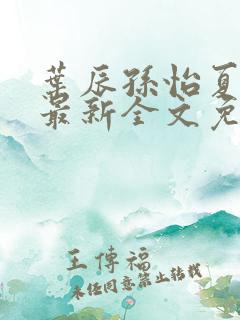 叶辰孙怡夏
最新全文免
王传福
未经同意禁止转载